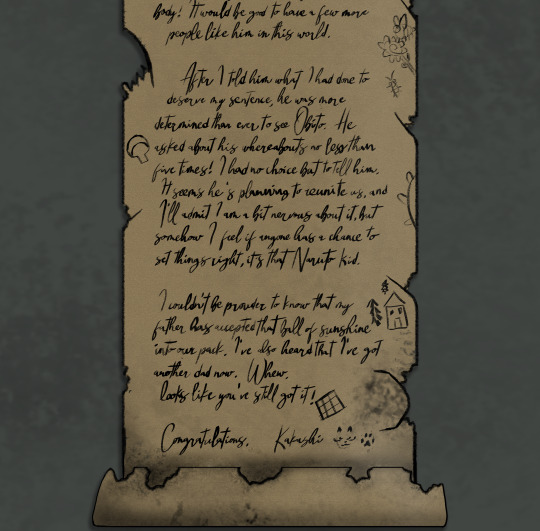 body! It would be good to have a few more
people like him in this world.
After I told him what I had done to
deserve my sentence, he was more
determined than ever to see Obito. He
asked about his whereabouts no less than
five times! I had no choice but to tell him.
It seems he's planning to reunite us, and
I'll admit I am a bit nervous about it, but
somehow I feel if anyone has a chance to
set things right, it's that Naruto kid.
I couldn't be prouder to know that my
father has accepted that ball of sunshine
into our pack. I've also heard that I've got
another dad now. Whew,
looks like you've still got it!
Congratulations, Kakashi